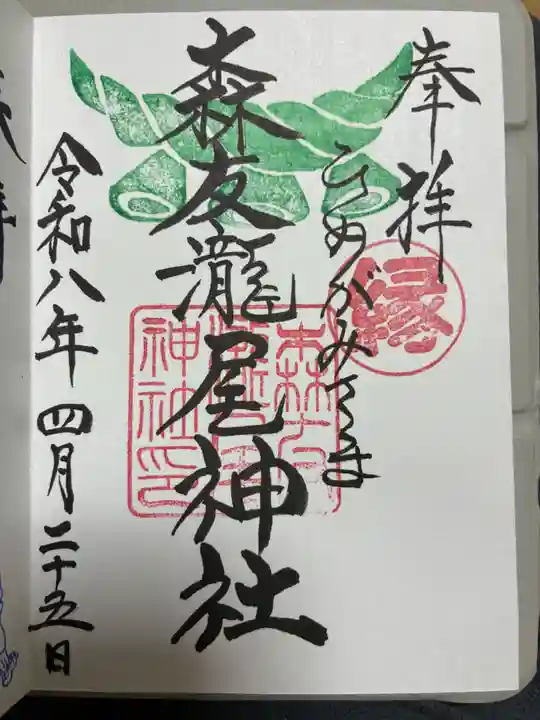 奉拝
縁
ひめがみさま
森友瀧尾神社
神社印
令和八年四月二十五日